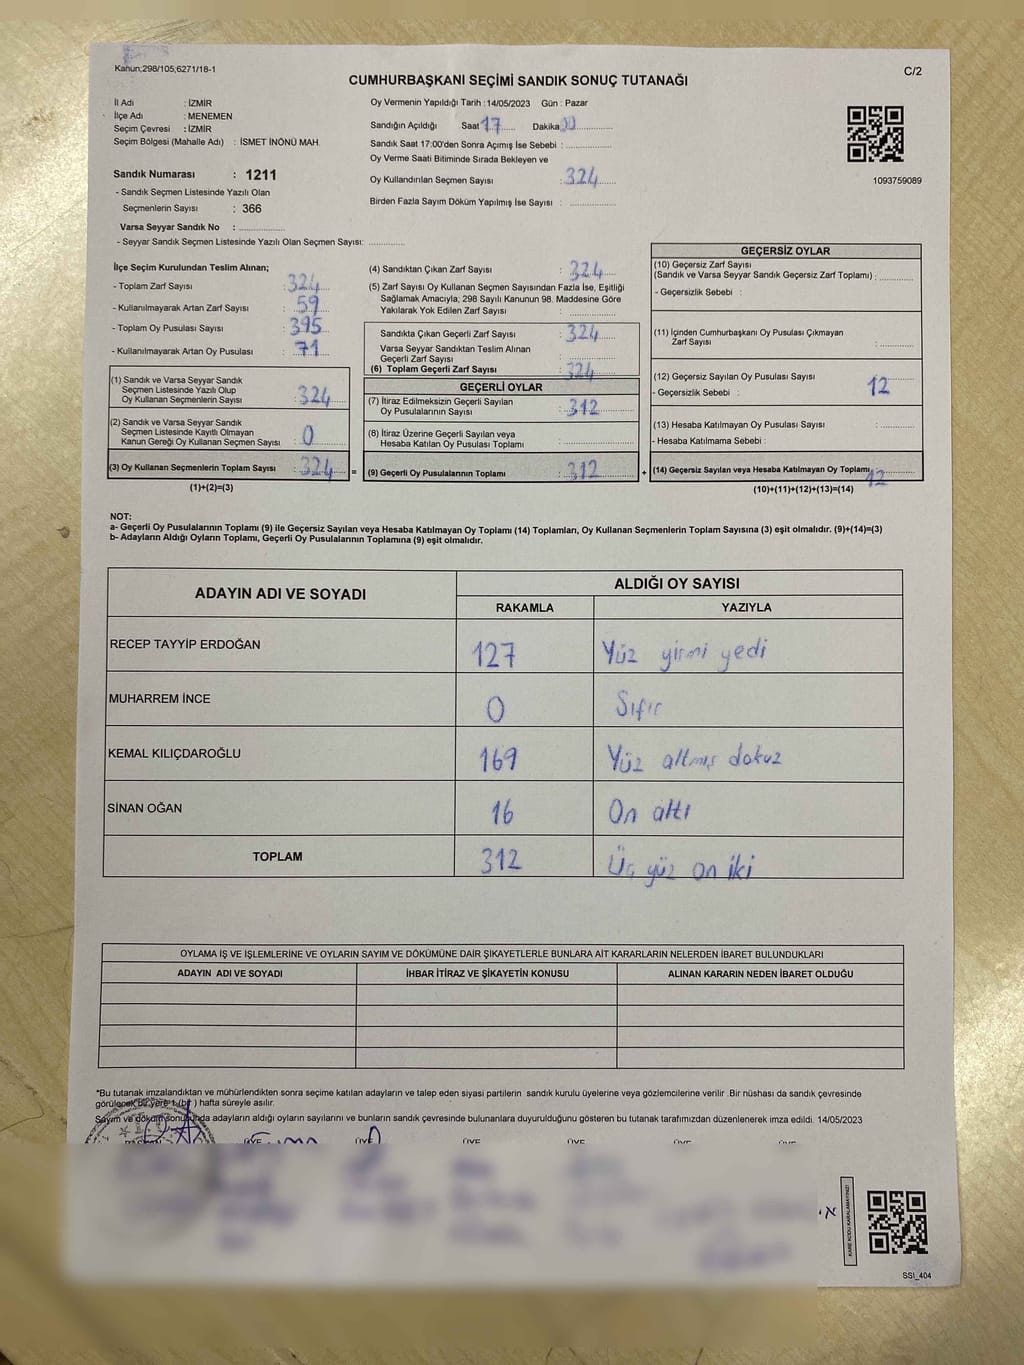 Kanun;298/105;6271/18-1
C/2
CUMHURBAŞKANI SEÇİMİ SANDIK SONUÇ TUTANAĞI
İl Adı : İZMİR
İlçe Adı : MENEMEN
Seçim Çevresi : İZMİR
Seçim Bölgesi (Mahalle Adı) : İSMET İNÖNÜ MAH.
Sandık Numarası : 1211
- Sandık Seçmen Listesinde Yazılı Olan
Seçmenlerin Sayısı : 366
Varsa Seyyar Sandık No :
- Seyyar Sandık Seçmen Listesinde Yazılı Olan Seçmen Sayısı:
Oy Vermenin Yapıldığı Tarih : 14/05/2023 Gün : Pazar
Sandığın Açıldığı Saat 17 Dakika 00
Sandık Saat 17:00'den Sonra Açımış İse Sebebi :
Oy Verme Saati Bitiminde Sırada Bekleyen ve
Oy Kullandırılan Seçmen Sayısı : 324
Birden Fazla Sayım Döküm Yapılmış İse Sayısı :
1093759089
İlçe Seçim Kurulundan Teslim Alınan;
- Toplam Zarf Sayısı : 324
- Kullanılmayarak Artan Zarf Sayısı : 59
- Toplam Oy Pusulası Sayısı : 395
- Kullanılmayarak Artan Oy Pusulası : 71
(1) Sandık ve Varsa Seyyar Sandık
Seçmen Listesinde Yazılı Olup
Oy Kullanan Seçmenlerin Sayısı : 324
(2) Sandık ve Varsa Seyyar Sandık
Seçmen Listesinde Kayıtlı Olmayan
Kanun Gereği Oy Kullanan Seçmen Sayısı : 0
(3) Oy Kullanan Seçmenlerin Toplam Sayısı : 324 =
(1)+(2)=(3)
(4) Sandıktan Çıkan Zarf Sayısı : 324
(5) Zarf Sayısı Oy Kullanan Seçmen Sayısından Fazla İse, Eşitliği
Sağlamak Amacıyla; 298 Sayılı Kanunun 98. Maddesine Göre
Yakılarak Yok Edilen Zarf Sayısı :
Sandıkta Çıkan Geçerli Zarf Sayısı : 324
Varsa Seyyar Sandıktan Teslim Alınan
Geçerli Zarf Sayısı :
(6) Toplam Geçerli Zarf Sayısı : 324
GEÇERLİ OYLAR
(7) İtiraz Edilmeksizin Geçerli Sayılan
Oy Pusulalarının Sayısı : 312
(8) İtiraz Üzerine Geçerli Sayılan veya
Hesaba Katılan Oy Pusulası Toplamı :
(9) Geçerli Oy Pusulalarının Toplamı : 312 +
GEÇERSİZ OYLAR
(10) Geçersiz Zarf Sayısı
(Sandık ve Varsa Seyyar Sandık Geçersiz Zarf Toplamı) :
- Geçersizlik Sebebi :
(11) İçinden Cumhurbaşkanı Oy Pusulası Çıkmayan
Zarf Sayısı :
(12) Geçersiz Sayılan Oy Pusulası Sayısı : 12
- Geçersizlik Sebebi :
(13) Hesaba Katılmayan Oy Pusulası Sayısı :
- Hesaba Katılmama Sebebi :
(14) Geçersiz Sayılan veya Hesaba Katılmayan Oy Toplamı : 12
(10)+(11)+(12)+(13)=(14)
NOT:
a- Geçerli Oy Pusulalarının Toplamı (9) ile Geçersiz Sayılan veya Hesaba Katılmayan Oy Toplamı (14) Toplamları, Oy Kullanan Seçmenlerin Toplam Sayısına (3) eşit olmalıdır. (9)+(14)=(3)
b- Adayların Aldığı Oyların Toplamı, Geçerli Oy Pusulalarının Toplamına (9) eşit olmalıdır.
ADAYIN ADI VE SOYADI ALDIĞI OY SAYISI
RAKAMLA YAZIYLA
RECEP TAYYİP ERDOĞAN 127 Yüz yirmi yedi
MUHARREM İNCE 0 Sıfır
KEMAL KILIÇDAROĞLU 169 Yüz altmış dokuz
SİNAN OĞAN 16 On altı
TOPLAM 312 Üç yüz on iki
OYLAMA İŞ VE İŞLEMLERİNE VE OYLARIN SAYIM VE DÖKÜMÜNE DAİR ŞİKAYETLERLE BUNLARA AİT KARARLARIN NELERDEN İBARET BULUNDUKLARI
ADAYIN ADI VE SOYADI İHBAR İTİRAZ VE ŞİKAYETİN KONUSU ALINAN KARARIN NEDEN İBARET OLDUĞU
*Bu tutanak imzalandıktan ve mühürlendikten sonra seçime katılan adayların ve talep eden siyasi partilerin sandık kurulu üyelerine veya gözlemcilerine verilir. Bir nüshası da sandık çevresinde
görülecek bir yere 1 (bir) hafta süreyle asılır.
Sayım ve döküm sonucunda adayların aldığı oyların sayılarını ve bunların sandık çevresinde bulunanlara duyurulduğunu gösteren bu tutanak tarafımızdan düzenlenerek imza edildi. 14/05/2023
ÜYE ÜYE ÜYE ÜYE ÜYE ÜYE
KARE KODU KARALAMAYINIZ!
SSİ_404